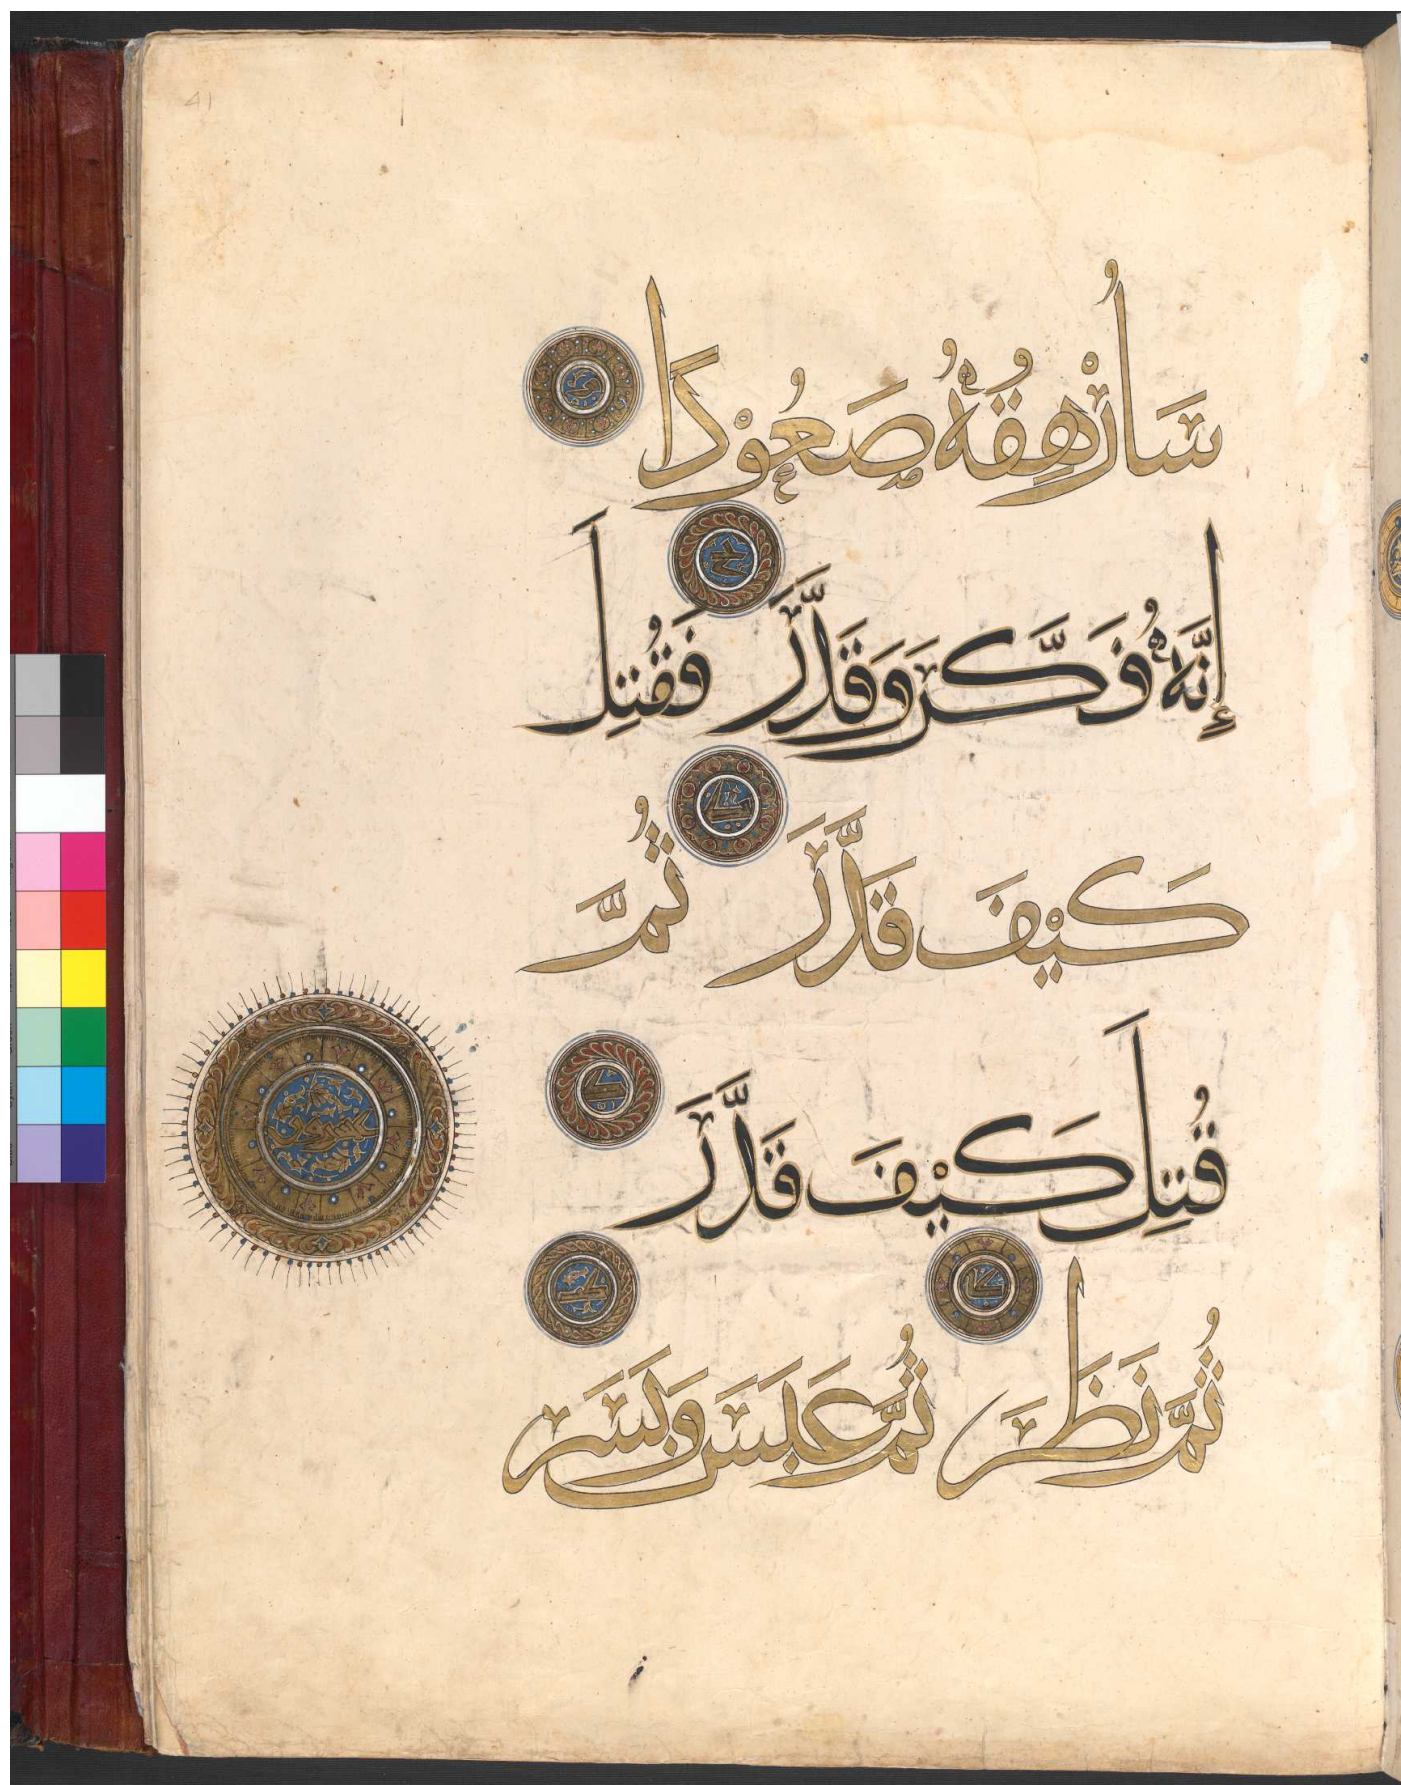 سَأُرْهِقُهُ صَعُوْدًا
إِنَّهُ فَكَّرَ وَقَدَّرَ فَقُتِلَ
كَيْفَ قَدَّرَ ثُمَّ
قُتِلَ كَيْفَ قَدَّرَ
ثُمَّ نَظَرَ ثُمَّ عَبَسَ وَبَسَرَ